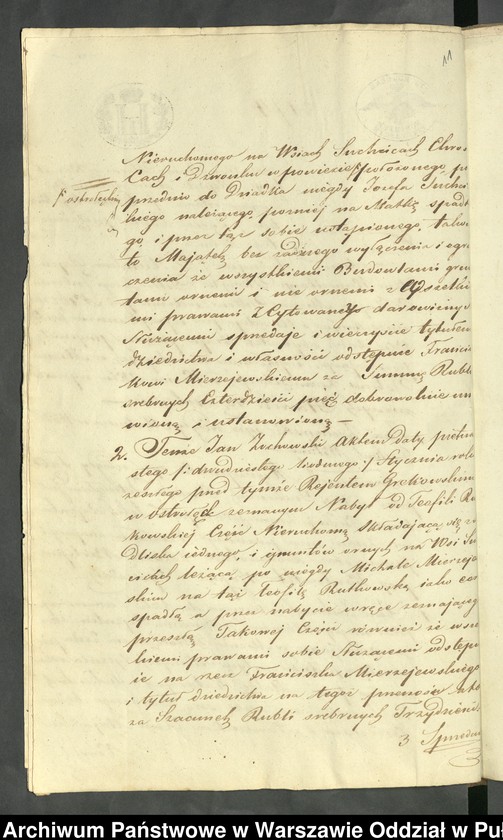 11
Nieruchomego na Wsiach Suchcicach Chros
Cach i Dzwonku w powiecie położonego po
ostrołęckim
przednio do Dziadka niegdy Jozefa Suchci
ckiego należącego, poźniej na Matkę spadł
go i przez taż sobie ustąpionego, takowe
to Majątek bez żadnego wyłączenia i ogra
czenia ze wszystkiemi Budowlami grun
tami ornemi i nie ornemi z
mi prawami z Cytowanego darowizny
Stużacemi sprzedaje i wieczyście tytułem
dziedzictwa i własności odstępuie Franci
kowi Mierzejewskiemu za Summę Rubli
srebrnych Czterdzieści pięć dobrowolnie um
wioną i ustanowioną —
2. Tenże Jan Żochowski Aktem daty pietna
stego /: dwudziestego siodmego :/ Stycznia roku
zeszłego przed tymże Rejentem Grotkowskim
w Ostrołęce zeznanym Nabył od Teofili Ru
tkowskiej Część Nieruchomą składającą się z
dliska iednego, i gruntów ornych na Wsi Su
cicach leżącą po niegdy Michale Mierzeje
skim na taż Teofilę Rutkowską iako
spadłą a przez nabycie w ręce zeznającego
przeszłą Takowej Części również ze wsz
kiemi prawami sobie Stużacemi odstępu
ie na rzecz Franciszka Mierzejewskiego
i tytuł dziedzictwa na tegoż przenosi
za Szacunek Rubli srebrnych Trzydzieści
3 Sprzedai
Archiwum Państwowe w Warszawie Oddział w Pu